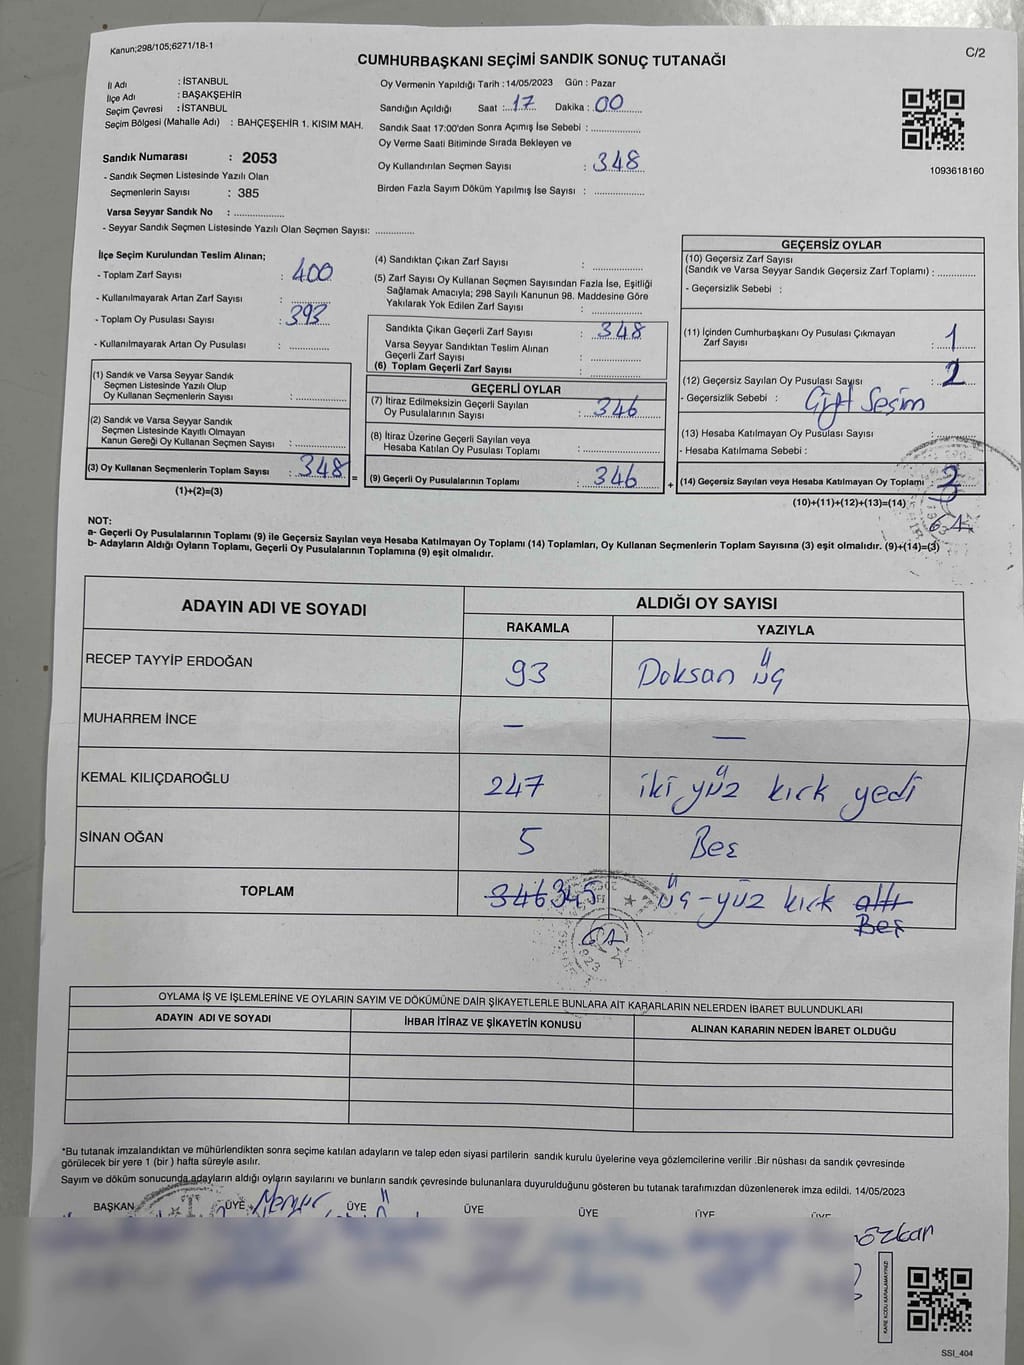 Kanun;298/105;6271/18-1
C/2
CUMHURBAŞKANI SEÇİMİ SANDIK SONUÇ TUTANAĞI
İl Adı : İSTANBUL
İlçe Adı : BAŞAKŞEHİR
Seçim Çevresi : İSTANBUL
Seçim Bölgesi (Mahalle Adı) : BAHÇEŞEHİR 1. KISIM MAH.
Sandık Numarası : 2053
- Sandık Seçmen Listesinde Yazılı Olan
Seçmenlerin Sayısı : 385
Varsa Seyyar Sandık No : ................
- Seyyar Sandık Seçmen Listesinde Yazılı Olan Seçmen Sayısı: ............
Oy Vermenin Yapıldığı Tarih : 14/05/2023 Gün : Pazar
Sandığın Açıldığı Saat :..17.. Dakika : 00
Sandık Saat 17:00'den Sonra Açımış İse Sebebi : ................
Oy Verme Saati Bitiminde Sırada Bekleyen ve
Oy Kullandırılan Seçmen Sayısı : 348
Birden Fazla Sayım Döküm Yapılmış İse Sayısı : ................
1093618160
İlçe Seçim Kurulundan Teslim Alınan;
- Toplam Zarf Sayısı : 400
- Kullanılmayarak Artan Zarf Sayısı : ............
- Toplam Oy Pusulası Sayısı : 393
- Kullanılmayarak Artan Oy Pusulası : ............
(1) Sandık ve Varsa Seyyar Sandık
Seçmen Listesinde Yazılı Olup
Oy Kullanan Seçmenlerin Sayısı : ................
(2) Sandık ve Varsa Seyyar Sandık
Seçmen Listesinde Kayıtlı Olmayan
Kanun Gereği Oy Kullanan Seçmen Sayısı : ................
(3) Oy Kullanan Seçmenlerin Toplam Sayısı : 348
(1)+(2)=(3)
=
(4) Sandıktan Çıkan Zarf Sayısı : ................
(5) Zarf Sayısı Oy Kullanan Seçmen Sayısından Fazla İse, Eşitliği
Sağlamak Amacıyla; 298 Sayılı Kanunun 98. Maddesine Göre
Yakılarak Yok Edilen Zarf Sayısı : ................
Sandıkta Çıkan Geçerli Zarf Sayısı : 348
Varsa Seyyar Sandıktan Teslim Alınan
Geçerli Zarf Sayısı : ................
(6) Toplam Geçerli Zarf Sayısı : ................
GEÇERLİ OYLAR
(7) İtiraz Edilmeksizin Geçerli Sayılan
Oy Pusulalarının Sayısı : 346
(8) İtiraz Üzerine Geçerli Sayılan veya
Hesaba Katılan Oy Pusulası Toplamı : ................
(9) Geçerli Oy Pusulalarının Toplamı : 346
+
GEÇERSİZ OYLAR
(10) Geçersiz Zarf Sayısı
(Sandık ve Varsa Seyyar Sandık Geçersiz Zarf Toplamı) : ............
- Geçersizlik Sebebi :
(11) İçinden Cumhurbaşkanı Oy Pusulası Çıkmayan
Zarf Sayısı : 1
(12) Geçersiz Sayılan Oy Pusulası Sayısı : 2
- Geçersizlik Sebebi : Çift Seçim
(13) Hesaba Katılmayan Oy Pusulası Sayısı : ............
- Hesaba Katılmama Sebebi :
(14) Geçersiz Sayılan veya Hesaba Katılmayan Oy Toplamı : 3
(10)+(11)+(12)+(13)=(14)
NOT:
a- Geçerli Oy Pusulalarının Toplamı (9) ile Geçersiz Sayılan veya Hesaba Katılmayan Oy Toplamı (14) Toplamları, Oy Kullanan Seçmenlerin Toplam Sayısına (3) eşit olmalıdır. (9)+(14)=(3)
b- Adayların Aldığı Oyların Toplamı, Geçerli Oy Pusulalarının Toplamına (9) eşit olmalıdır.
ADAYIN ADI VE SOYADI
ALDIĞI OY SAYISI
RAKAMLA YAZIYLA
RECEP TAYYİP ERDOĞAN 93 Doksan üç
MUHARREM İNCE — —
KEMAL KILIÇDAROĞLU 247 iki yüz kırk yedi
SİNAN OĞAN 5 Beş
TOPLAM 346 345 üç-yüz kırk altı
Beş
OYLAMA İŞ VE İŞLEMLERİNE VE OYLARIN SAYIM VE DÖKÜMÜNE DAİR ŞİKAYETLERLE BUNLARA AİT KARARLARIN NELERDEN İBARET BULUNDUKLARI
ADAYIN ADI VE SOYADI İHBAR İTİRAZ VE ŞİKAYETİN KONUSU ALINAN KARARIN NEDEN İBARET OLDUĞU
*Bu tutanak imzalandıktan ve mühürlendikten sonra seçime katılan adayların ve talep eden siyasi partilerin sandık kurulu üyelerine veya gözlemcilerine verilir .Bir nüshası da sandık çevresinde
görülecek bir yere 1 (bir ) hafta süreyle asılır.
Sayım ve döküm sonucunda adayların aldığı oyların sayılarını ve bunların sandık çevresinde bulunanlara duyurulduğunu gösteren bu tutanak tarafımızdan düzenlenerek imza edildi. 14/05/2023
BAŞKAN ÜYE ÜYE ÜYE ÜYE ÜYE ÜYE
özkan
KARE KODU KARALAMAYINIZ!
SSI_404